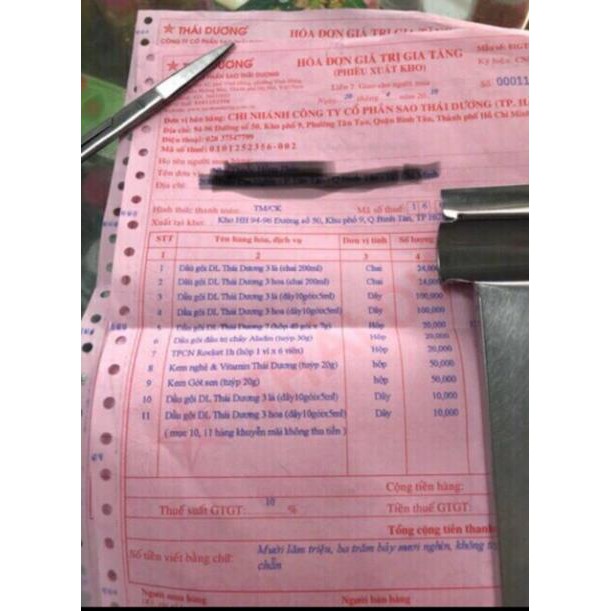 THÁI DƯƠNG
CÔNG TY CỔ PHẦN SAO THÁI
HÓA ĐƠN GIÁ TRỊ GIA TĂNG
DƯƠNG
PHẦN SAO THÁI DƯƠNG
HÓA ĐƠN GIÁ TRỊ GIA TĂNG
(PHIẾU XUẤT KHO)
Mẫu số:
Liên 2: Giao cho người mua
Ký hiệu:
Ngày 20 tháng 4 năm 20
Số: 00011
Đơn vị bán hàng: CHI NHÁNH CÔNG TY CỔ PHẦN SAO THÁI DƯƠNG (TP. H
Địa chỉ: 94-96 Đường số 50, Khu phố 9, Phường Tân Tạo, Quận Bình Tân, Thành phố Hồ Chí Minh
Điện thoại: 028 37547799
Mã số thuế: 0101252356-002
Họ tên người mua hàng
Tên đơn vị
Địa chỉ:
Hình thức thanh toán: TM/CK
Mã số thuế:
Xuất tại kho: Kho HH 94-96 Đường số 50, Khu phố 9, Q Bình Tân, TP
STT Tên hàng hóa, dịch vụ Đơn vị tính Số lượng
1 2 3 4
1 Dầu gội DL Thái Dương 3 lá (chai 200ml) Chai 24,000
2 Dầu gội DL Thái Dương 3 hoa (chai 200ml) Chai 24,000
3 Dầu gội DL Thái Dương 3 lá (dây10góix5ml) Dây 100,000
4 Dầu gội DL Thái Dương 3 hoa (dây10góix5ml) Dây 100,000
5 Dầu gội DL Thái Dương 7 (hộp 40 gói x 7g) Hộp 20,000
6 Dầu gội đầu trị chấy Aladin (tuýp 30g) Hộp 20,000
7 TPCN Rocket 1h (hộp 1 vỉ x 6 viên) Hộp 20,000
8 Kem nghệ & Vitamin Thái Dương (tuýp 20g) hộp 50,000
9 Kem Gót sen (tuýp 20g) hộp 50,000
10 Dầu gội DL Thái Dương 3 lá (dây10góix5ml) Dây 10,000
11 Dầu gội DL Thái Dương 3 hoa (dây10góix5ml) Dây 10,000
( mục 10, 11 hàng khuyến mãi không thu tiền )
Cộng tiền hàng:
Thuế suất GTGT: 10 %
Tiền thuế GTGT:
Tổng cộng tiền thanh
Số tiền viết bằng chữ: Mười lăm triệu, ba trăm bảy mươi nghìn, không
chẵn
Người mua hàng
Người bán hàng